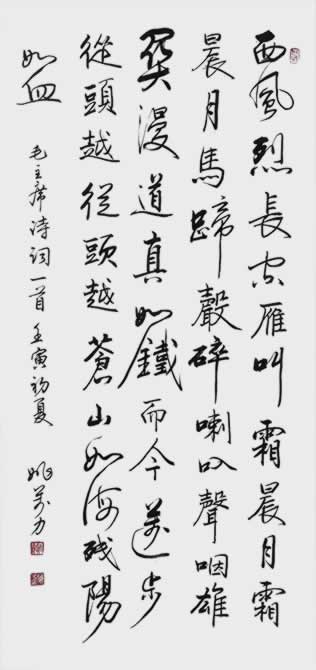 西風烈長空雁叫霜晨月霜
晨月馬蹄聲碎喇叭聲咽雄
關漫道真如鐵而今邁步
從頭越從頭越蒼山如海残陽
如血
毛主席诗词一首壬寅初夏
姚萬力